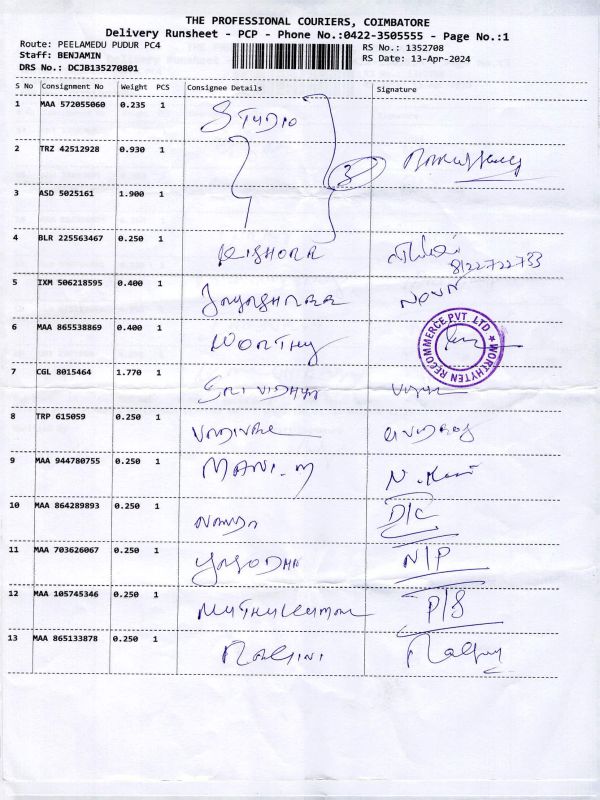 THE PROFESSIONAL COURIERS, COIMBATORE
Delivery Runsheet - PCP - Phone No.:0422-3505555 - Page No.:1
Route: PEELAMEDU PUDUR PC4
RS No.: 1352708
Staff: BENJAMIN
RS Date: 13-Apr-2024
DRS No.: DCJB135270801
S No Consignment No Weight PCS Consignee Details Signature
1 MAA 572055060 0.235 1 STUDIO
2 TRZ 42512928 0.930 1 3
3 ASD 5025161 1.900 1
4 BLR 225563467 0.250 1 KISHORE
8122722733
5 IXM 506218595 0.400 1
6 MAA 865538869 0.400 1 WORTHY
WORTHYTEN RECOMMERCE PVT. LTD
7 CGL 8015464 1.770 1 SRIVIDHYA
8 TRP 615059 0.250 1
9 MAA 944780755 0.250 1 MANI.M
10 MAA 864289893 0.250 1 D/C
11 MAA 703626067 0.250 1 YASODHA N/P
12 MAA 105745346 0.250 1 MUTHUKUMAR P/S
13 MAA 865133878 0.250 1